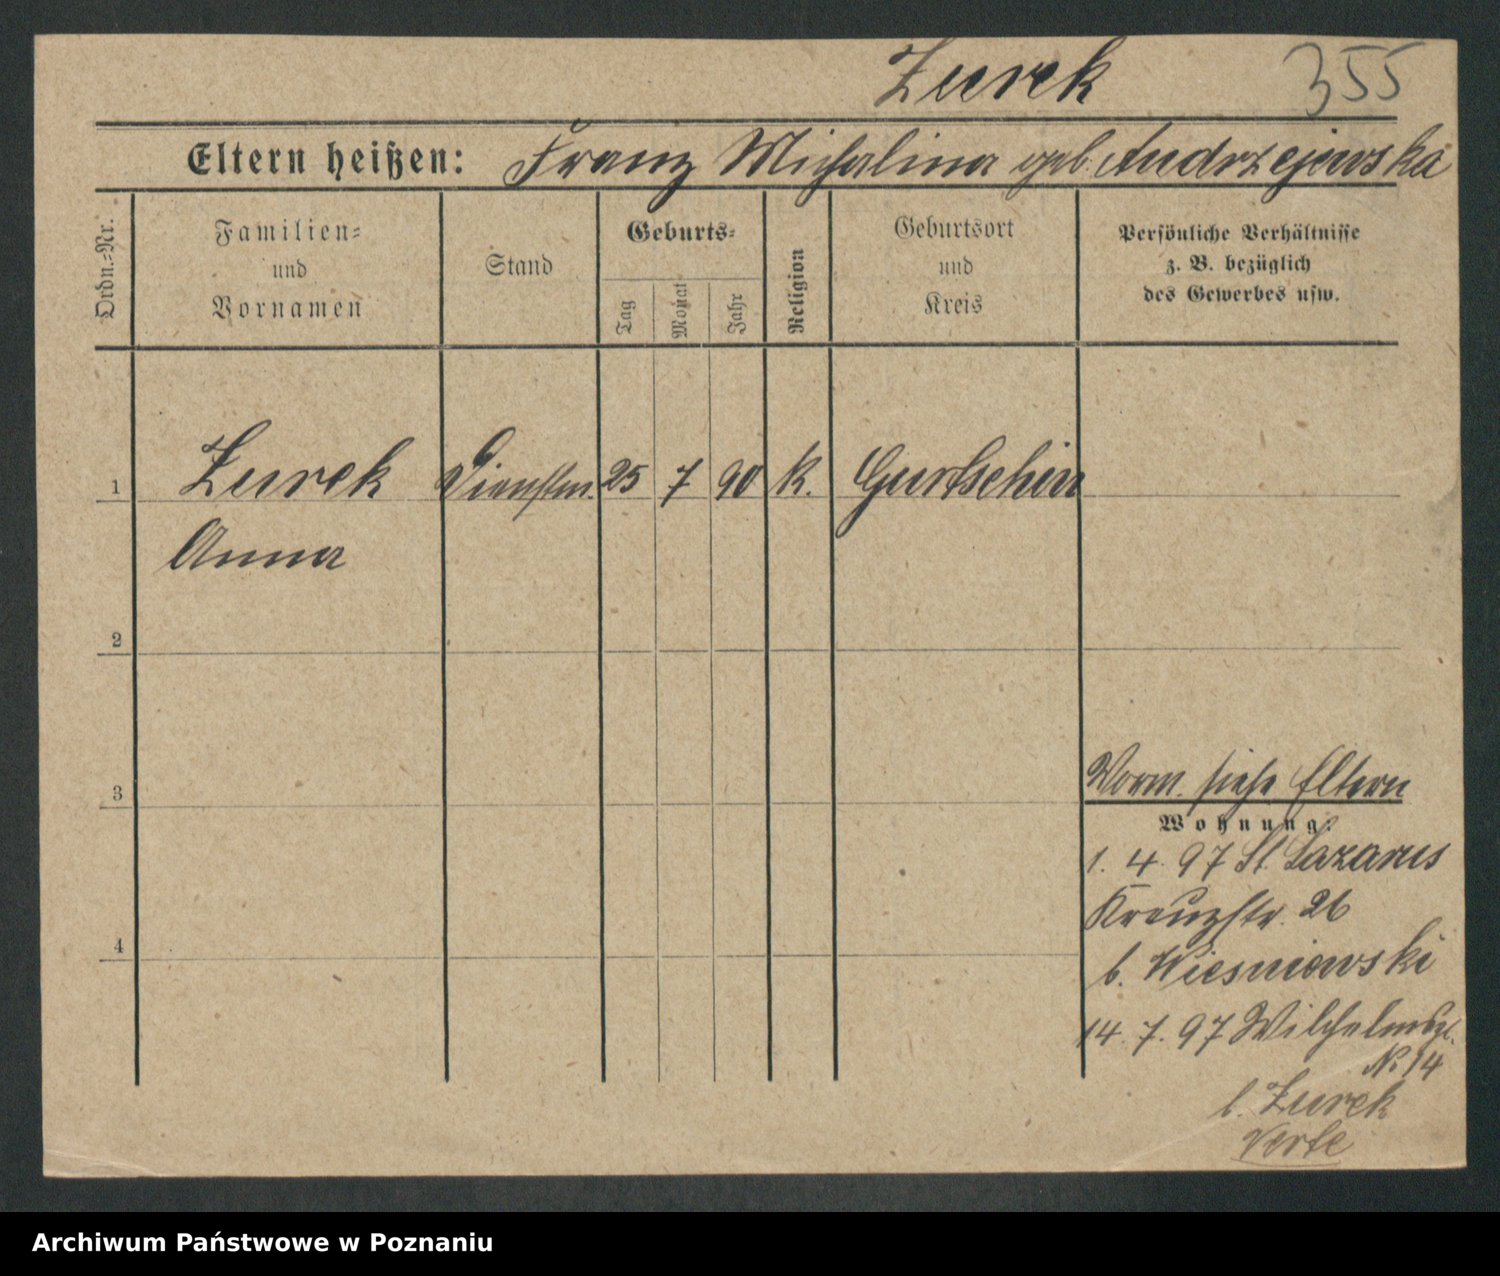 Zurek 355
Eltern heißen: Franz Michalina geb. Andrzejewska
Ordn.-Nr.
Familien-
und
Vornamen
Stand
Geburts-
Tag
Monat
Jahr
Religion
Geburtsort
und
Kreis
Persönliche Verhältnisse
z. B. bezüglich
des Gewerbes usw.
1 Zurek Dienstm. 25 7 90 K. Gurtschin
Anna
2
3
4
Vorm. siehe Eltern
Wohnung:
1. 4. 97 St. Lazarus
Kreuzstr. 26
b. Wiesniewski
14. 7. 97 Wilhelmspl.
No 14
b. Zurek
Verte
Archiwum Państwowe w Poznaniu